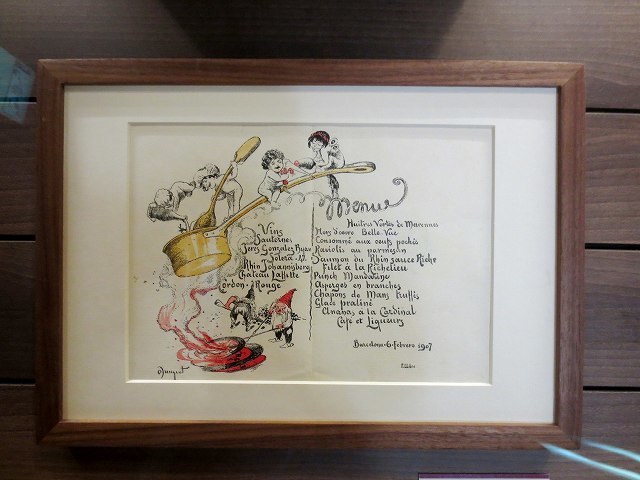 Menu
Vins
Sauterne
Jerez Gonzalez Byass
Solera - 47
Rhin Johannisberg
Chateau Laffitte
Cordon - Rouge
Huitres Vertes de Marennes
Hors d'oeuvre Belle Vue
Consommé aux oeufs pochés
Raviolis au parmesan
Saumon du Rhin sauce Riche
Filet à la Richelieu
Punch Mandarine
Asperges en branches
Chapons de Mans truffés
Glace praliné
Ananas à la Cardinal
Café et Liqueurs
Barcelona - 6 - Febrero 1907